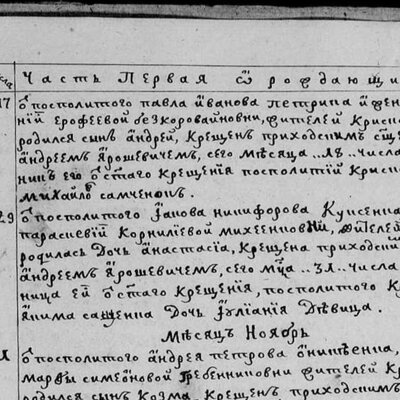 Часть Первая ѿ рождающи
17 ѿ посполитого павла иванова петрина и жен
ній ерофеевой безкоровайновни, жителей криско
родился сынъ андрей, крещен приходскимъ
андреемъ ярошевичемъ, сего мѣсяца ..числа
никъ его ѿ стаго крещенія посполитій криско
михайло самченокъ.
29 ѿ посполитого іакова никифорова
параскевіи корниліевой михеенковни, жителей
родилась дочь анастасіа, крещена приходскі
андреемъ ярошевичемъ, сего мца .. числа
ница ей ѿ стаго крещенія, посполитого
дочь іуліанія дѣвица.
Мѣсяцъ Ноябрь
ѿ посполитого андрея петрова онищенка,
марѳы симеоновой гребенниковни жителей кр
родился сынъ козма, крещенъ приходскимъ